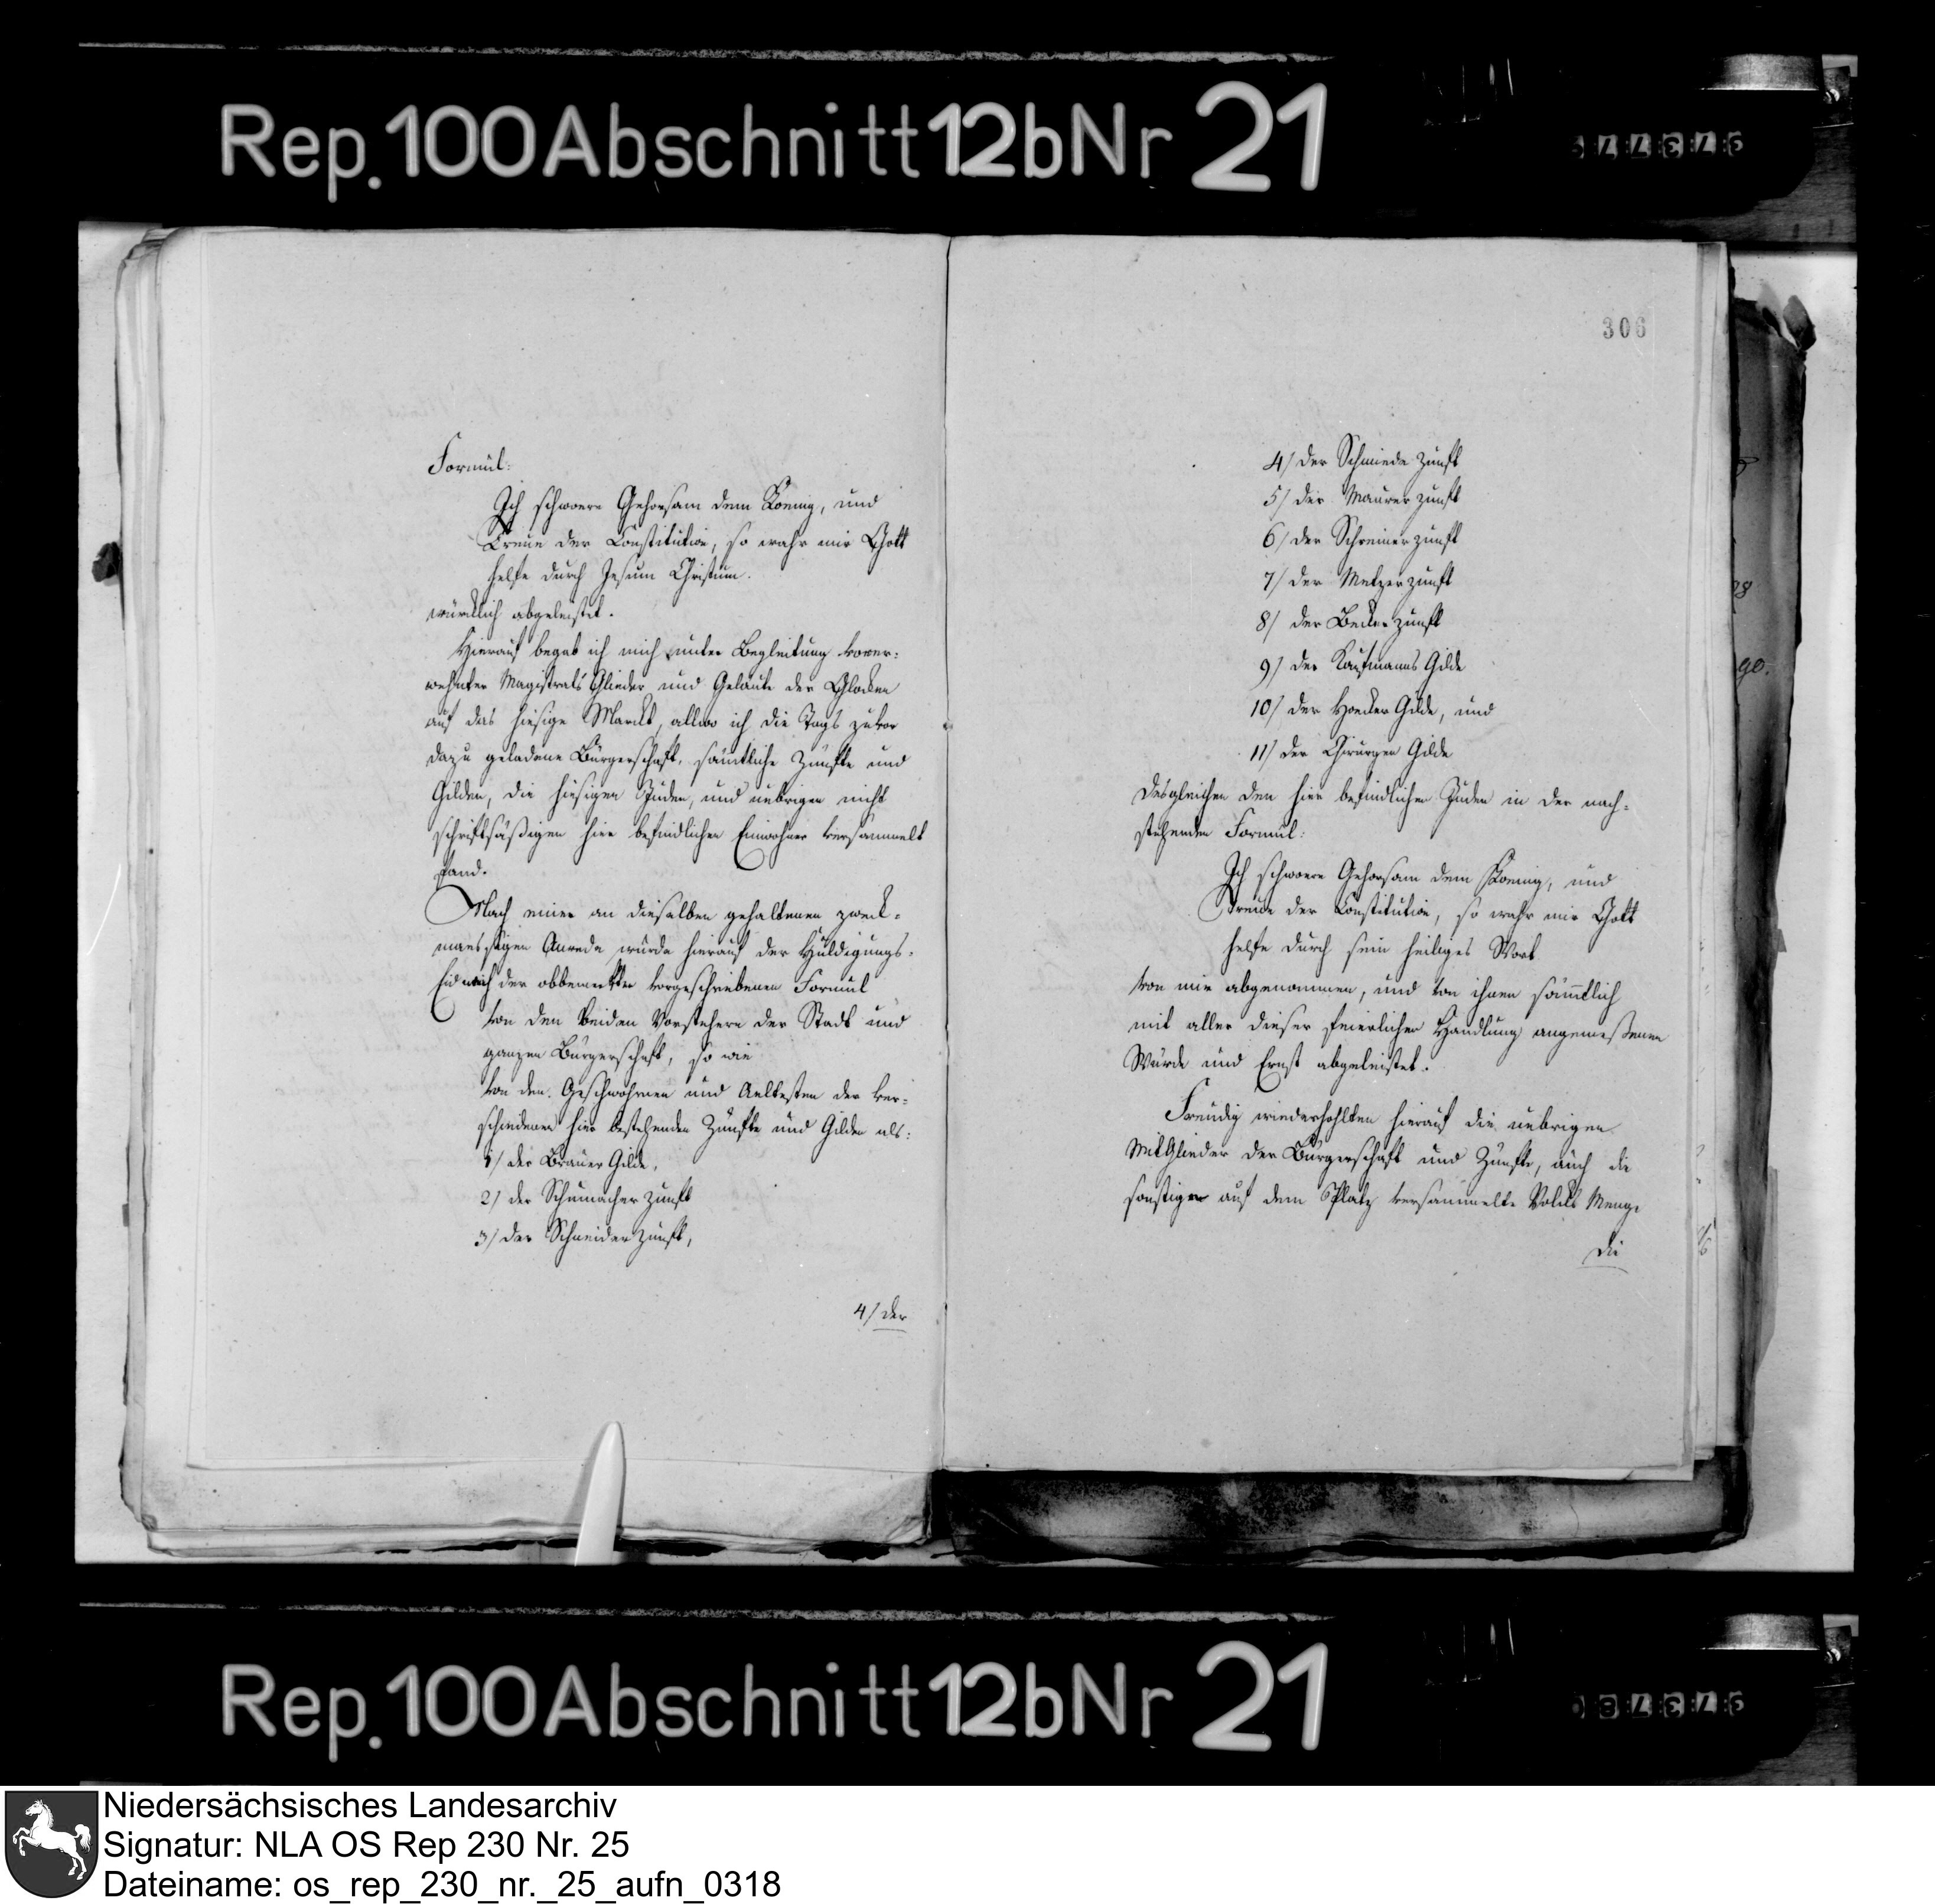 Rep. 100 Abschnitt 12b Nr 21
Formul:
Ich schwoere Gehorsam dem Koenig, und
Treue der Constitution, so wahr mir Gott
helfe durch Jesum Christum.
würcklich abgeleistet.
Hierauf begab ich mich unter Begleitung vorer-
wehnter Magistrats Glieder und Geläute der Glocken
auf das hiesige Marckt, allwo ich die Tags zuvor
dazu geladene Bürgerschaft, sämtliche Zünfte und
Gilden, die hiesigen Juden, und uebrigen nicht
schriftsäßigen hier befindlichen Einwohner versammelt
fand.
Nach einer an dieselben gehaltenen zweck-
maessigen Anrede wurde hierauf der Huldigungs-
Eid nach der obbemerkten vorgeschriebenen Formul
von den beiden Vorstehern der Stadt und
ganzen Bürgerschaft, so wie
von den Geschwohrnen und Aeltesten der ver-
schiedenen hier bestehenden Zünfte und Gilden als:
1/ der Brauer Gilde,
2/ der Schumacher Zunft
3/ der Schneider Zunft,
4/ der
306
4/ der Schmiede Zunft
5/ der Maurer zunft
6/ der Schreiner zunft
7/ der Metzer zunft
8/ der Becker zunft
9/ der Kaufmanns Gilde
10/ der Hoecker Gilde, und
11/ der Chirurgen Gilde
desgleichen den hier befindlichen Juden in der nach-
stehenden Formul:
Ich schwoere Gehorsam dem Koenig, und
Treue der Constitution, so wahr mir Gott
helfe durch sein heiliges Wort
von mir abgenommen, und von ihnen sämtlich
mit aller dieser feierlichen Handlung angemeßenen
Würde und Ernst abgeleistet.
Freudig wiederhohlten hierauf die uebrigen
MitGlieder der Bürgerschaft und Zünfte, auch die
sonstigen auf dem Platz versammelte Volcks Menge
die
Rep. 100 Abschnitt 12b Nr 21
Niedersächsisches Landesarchiv
Signatur: NLA OS Rep 230 Nr. 25
Dateiname: os_rep_230_nr._25_aufn_0318